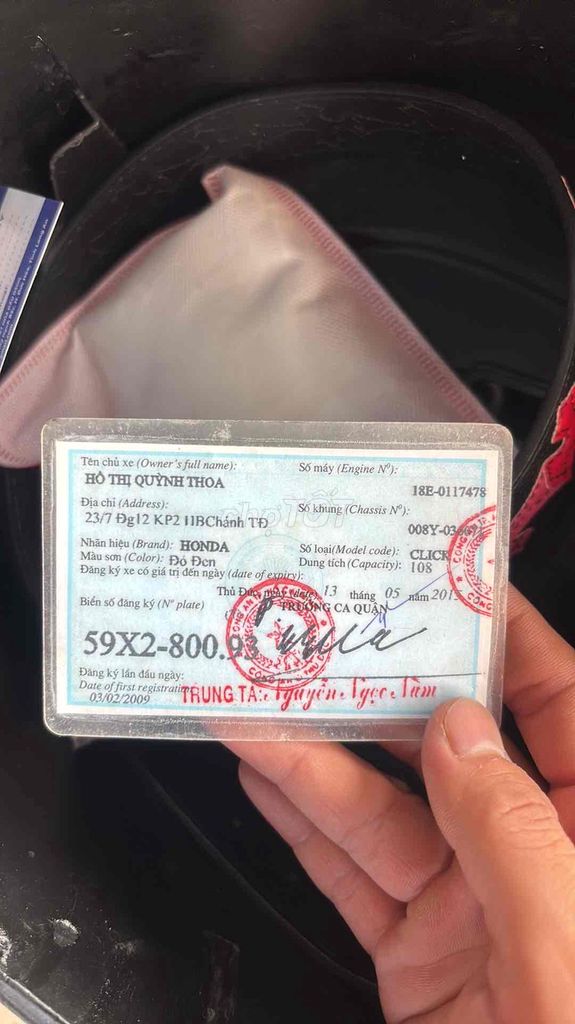 Tên chủ xe (Owner's full name):
HỒ THỊ QUỲNH THOA
Số máy (Engine Nº):
18E-0117478
Địa chỉ (Address):
23/7 Đg12 KP2 HBChánh TĐ
Số khung (Chassis Nº):
008Y-03
Nhãn hiệu (Brand): HONDA
Số loại(Model code): CLICK
Màu sơn (Color): Đỏ Đen
Dung tích (Capacity): 108
Đăng ký xe có giá trị đến ngày (date of expiry):
Thủ Đức, ngày (date) 13 tháng 05 năm 201
Biển số đăng ký (Nº plate)
TRƯỞNG CA QUẬN
59X2-800.93
Đăng ký lần đầu ngày:
Date of first registration
03/02/2009
TRUNG TÁ: Nguyễn Ngọc Năm
chợ TỐT
CÔNG AN